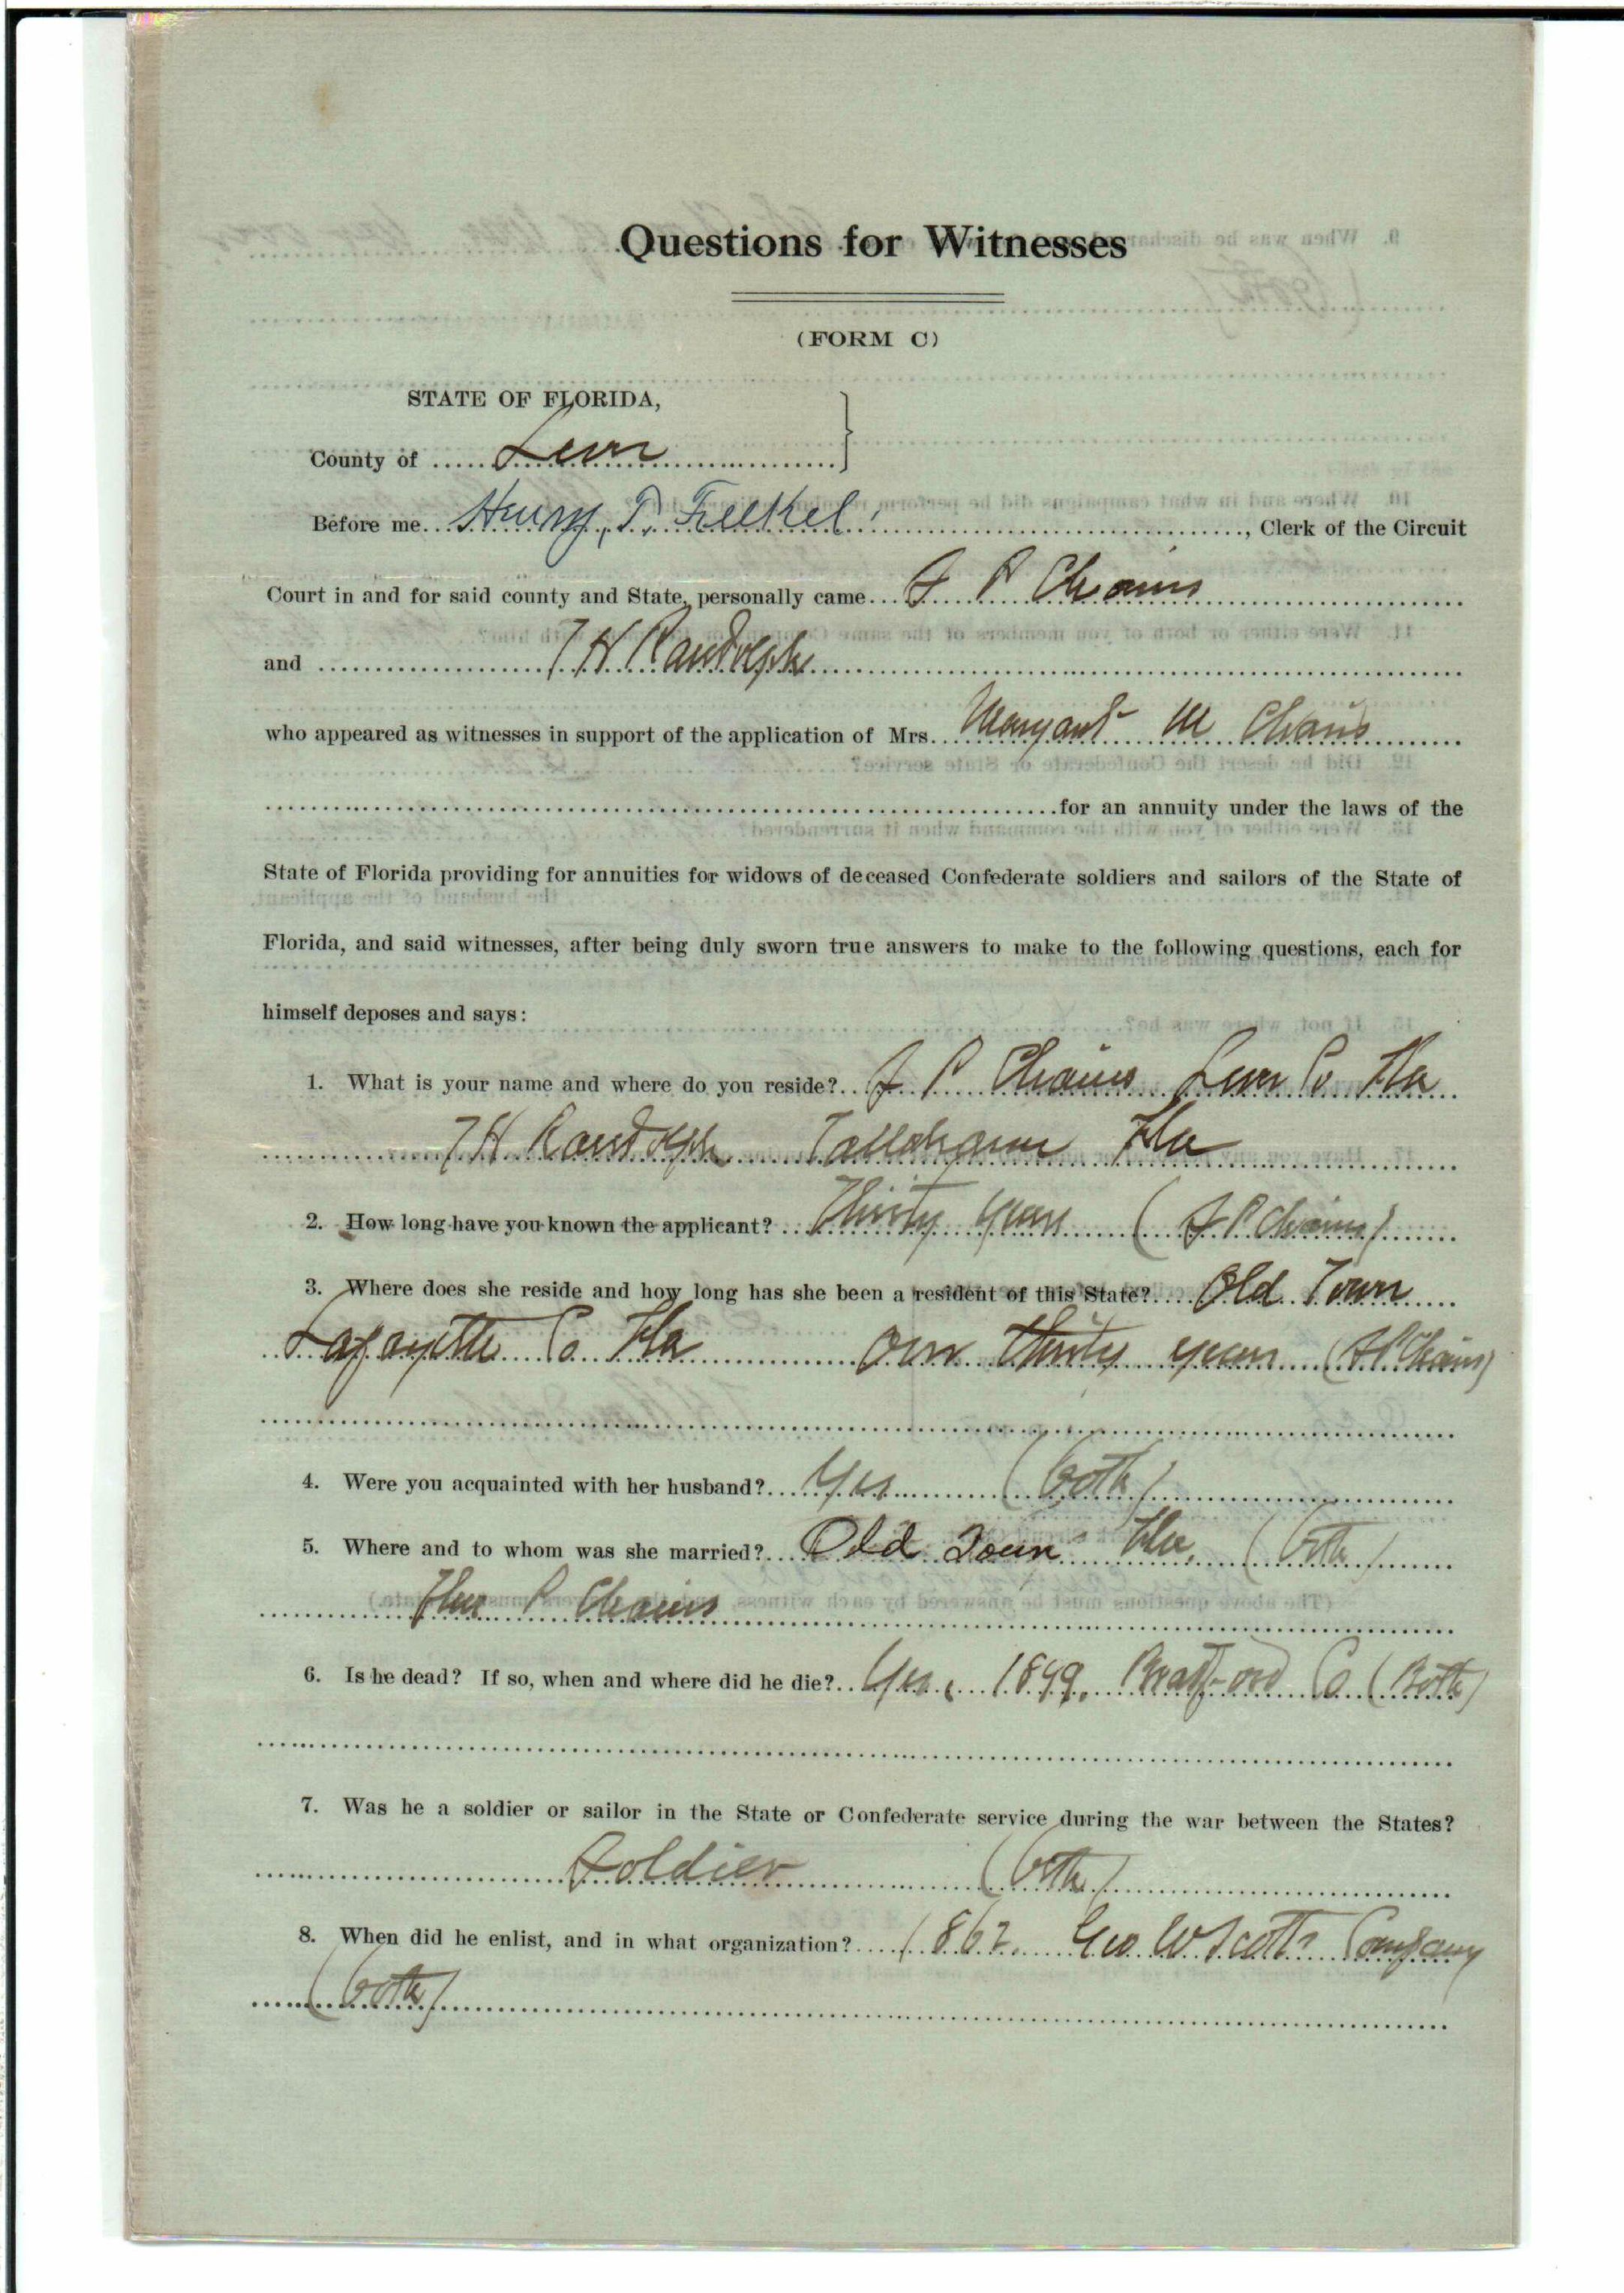 Questions for Witnesses
(FORM C)
STATE OF FLORIDA,
County of Leon
Before me Henry T. Felkel, Clerk of the Circuit
Court in and for said county and State, personally came S P Chaires
and T H Randolph
who appeared as witnesses in support of the application of Mrs. Margaret M Chaires
for an annuity under the laws of the
State of Florida providing for annuities for widows of deceased Confederate soldiers and sailors of the State of
Florida, and said witnesses, after being duly sworn true answers to make to the following questions, each for
himself deposes and says:
1. What is your name and where do you reside? S P Chaires Leon Co Fla
T H Randolph Tallahassee Fla
2. How long have you known the applicant? Thirty years (S P Chaires)
3. Where does she reside and how long has she been a resident of this State? Old Town
Lafayette Co Fla over thirty years (S P Chaires)
4. Were you acquainted with her husband? Yes (both)
5. Where and to whom was she married? Old Town Fla, (both)
P Chaires
6. Is he dead? If so, when and where did he die? Yes, 1899, Bradford Co (Both)
7. Was he a soldier or sailor in the State or Confederate service during the war between the States?
Soldier (both)
8. When did he enlist, and in what organization? 1862. Geo W Scotts Company
(both)